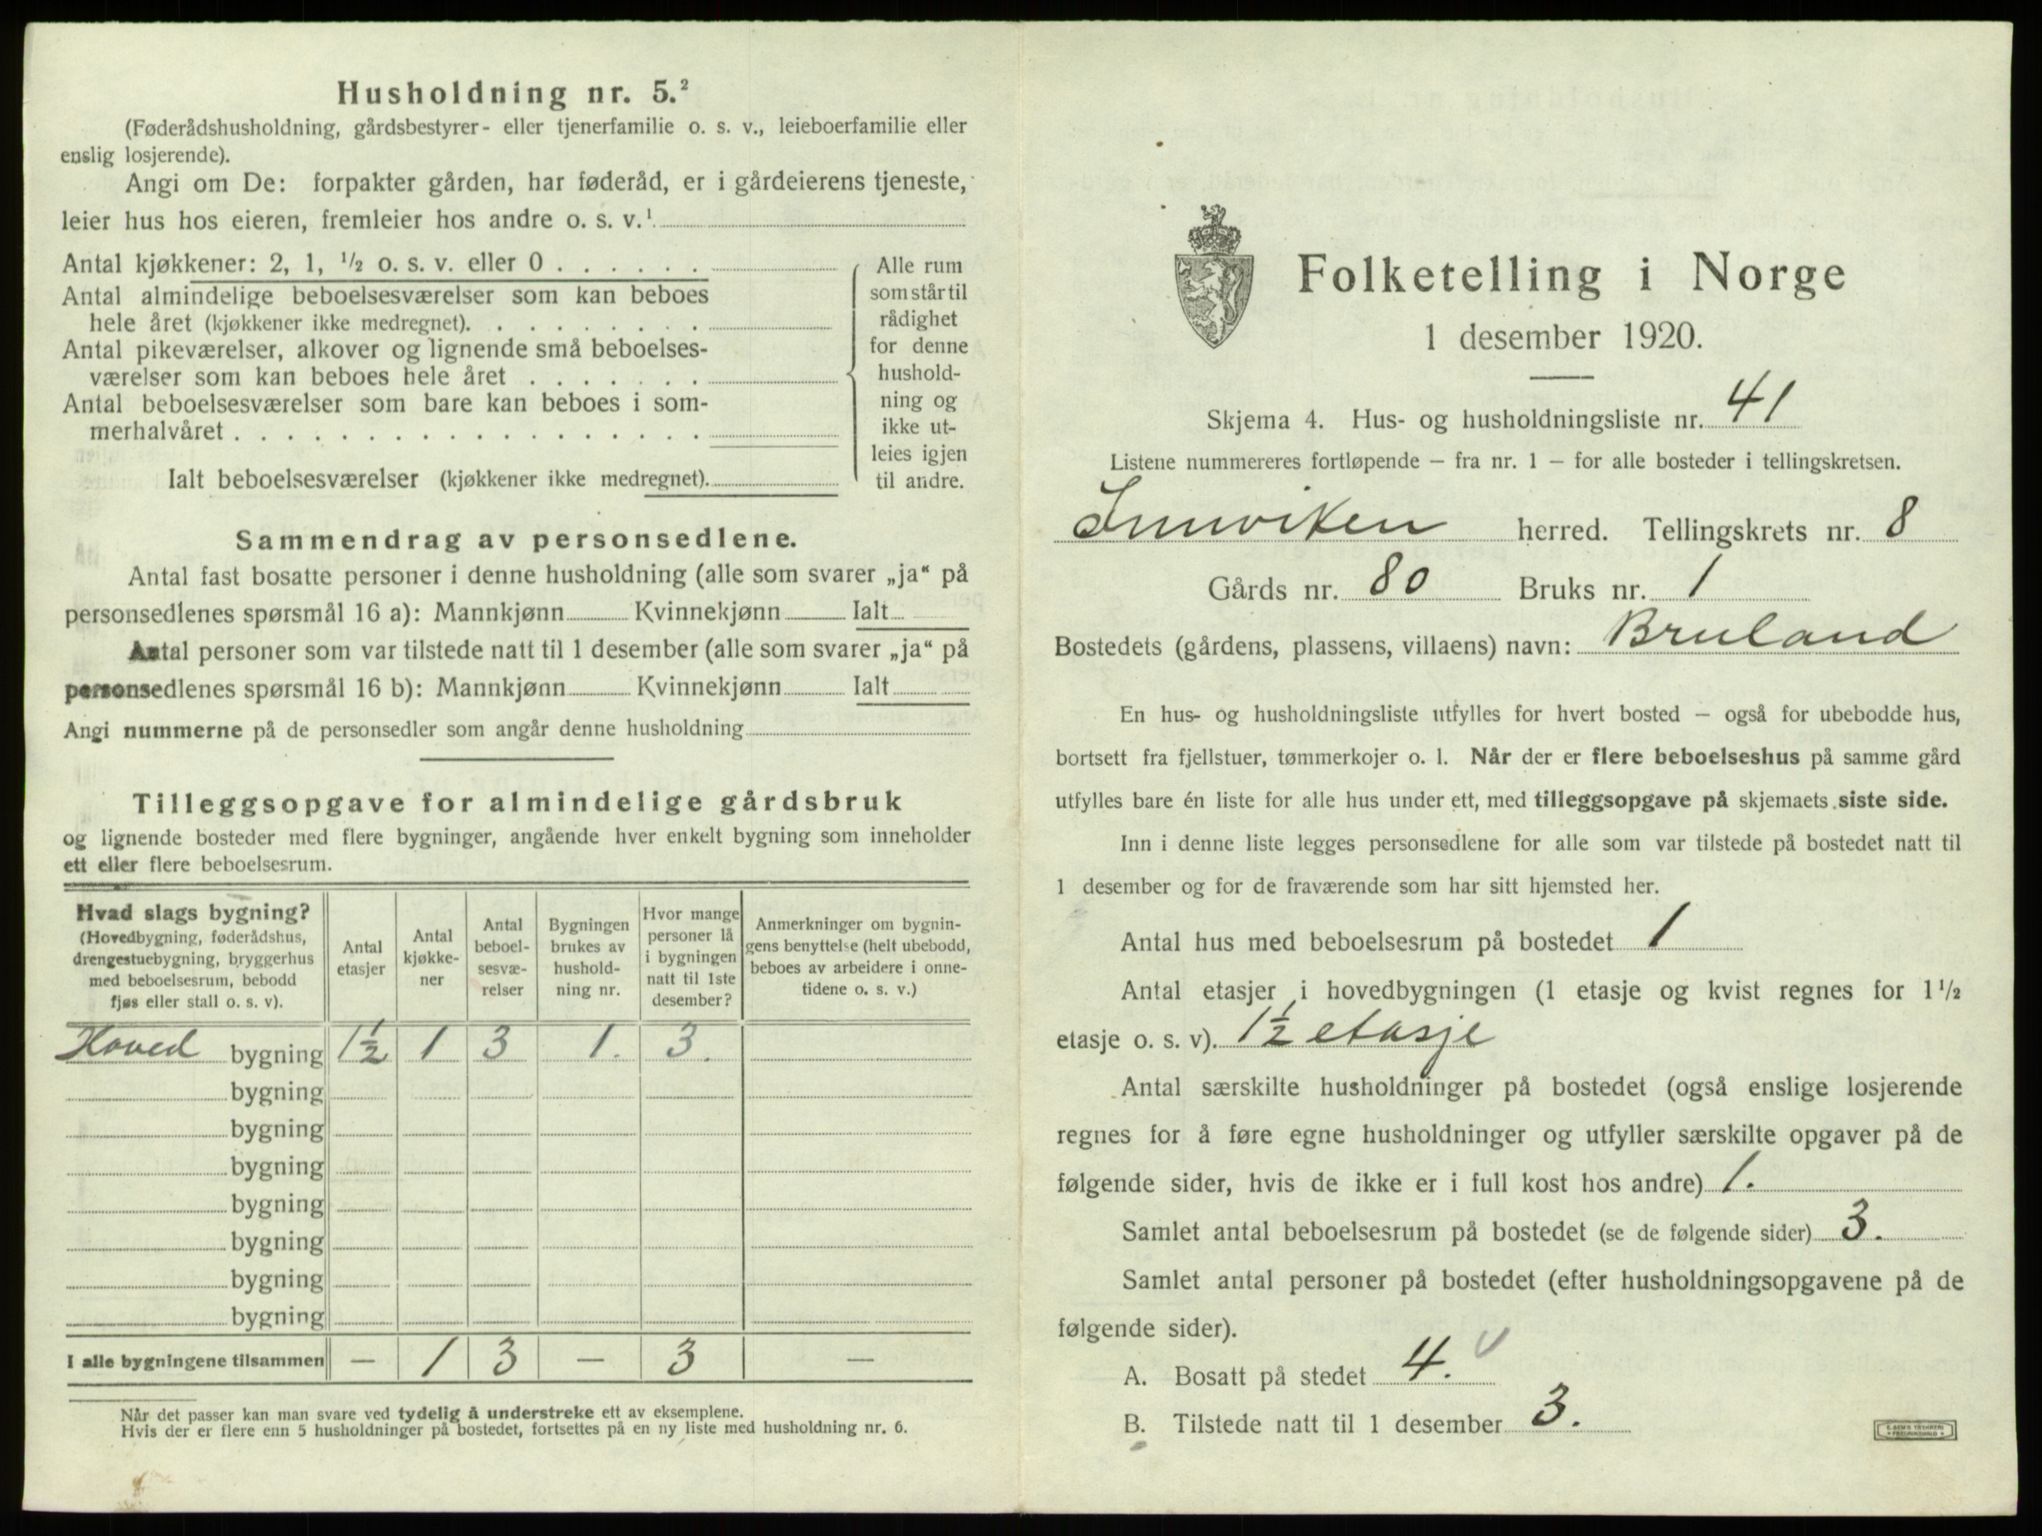 Husholdning nr. 5.²
(Føderådshusholdning, gårdsbestyrer- eller tjenerfamilie o. s. v., leieboerfamilie eller
enslig losjerende).
Angi om De: forpakter gården, har føderåd, er i gårdeierens tjeneste,
leier hus hos eieren, fremleier hos andre o. s. v.¹
Antal kjøkkener: 2, 1, ½ o. s. v. eller 0
Antal almindelige beboelsesværelser som kan beboes
hele året (kjøkkener ikke medregnet).
Antal pikeværelser, alkover og lignende små beboelses-
værelser som kan beboes hele året
Antal beboelsesværelser som bare kan beboes i som-
merhalvåret
Ialt beboelsesværelser (kjøkkener ikke medregnet).
Alle rum
som står til
rådighet
for denne
hushold-
ning og
ikke ut-
leies igjen
til andre.
Sammendrag av personsedlene.
Antal fast bosatte personer i denne husholdning (alle som svarer „ja“ på
personsedlenes spørsmål 16 a): Mannkjønn Kvinnekjønn Ialt
Antal personer som var tilstede natt til 1 desember (alle som svarer „ja“ på
personsedlenes spørsmål 16 b): Mannkjønn Kvinnekjønn Ialt
Angi nummerne på de personsedler som angår denne husholdning
Tilleggsopgave for almindelige gårdsbruk
og lignende bosteder med flere bygninger, angående hver enkelt bygning som inneholder
ett eller flere beboelsesrum.
Hvad slags bygning?
(Hovedbygning, føderådshus,
drengestuebygning, bryggerhus
med beboelsesrum, bebodd
fjøs eller stall o. s. v).
Antal
etasjer
Antal
kjøkke-
ner
Antal
beboel-
sesvæ-
relser
Bygningen
brukes av
hushold-
ning nr.
Hvor mange
personer lå
i bygningen
natt til 1ste
desember?
Anmerkninger om bygnin-
gens benyttelse (helt ubebodd,
beboes av arbeidere i onne-
tidene o. s. v.)
Hoved bygning 1½ 1 3 1. 3.
bygning
bygning
bygning
bygning
bygning
bygning
bygning
I alle bygningene tilsammen — 1 3 — 3 —
Når det passer kan man svare ved tydelig å understreke ett av eksemplene.
Hvis der er flere enn 5 husholdninger på bostedet, fortsettes på en ny liste med husholdning nr. 6.
Folketelling i Norge
1 desember 1920.
Skjema 4. Hus- og husholdningsliste nr. 41
Listene nummereres fortløpende – fra nr. 1 – for alle bosteder i tellingskretsen.
Innviken herred. Tellingskrets nr. 8
Gårds nr. 80 Bruks nr. 1
Bostedets (gårdens, plassens, villaens) navn: Bruland
En hus- og husholdningsliste utfylles for hvert bosted – også for ubebodde hus,
bortsett fra fjellstuer, tømmerkojer o. l. Når der er flere beboelseshus på samme gård
utfylles bare én liste for alle hus under ett, med tilleggsopgave på skjemaets siste side.
Inn i denne liste legges personsedlene for alle som var tilstede på bostedet natt til
1 desember og for de fraværende som har sitt hjemsted her.
Antal hus med beboelsesrum på bostedet 1
Antal etasjer i hovedbygningen (1 etasje og kvist regnes for 1½
etasje o. s. v). 1½ etasje
Antal særskilte husholdninger på bostedet (også enslige losjerende
regnes for å føre egne husholdninger og utfyller særskilte opgaver på de
følgende sider, hvis de ikke er i full kost hos andre) 1.
Samlet antal beboelsesrum på bostedet (se de følgende sider) 3.
Samlet antal personer på bostedet (efter husholdningsopgavene på de
følgende sider).
A. Bosatt på stedet 4.
B. Tilstede natt til 1 desember 3.